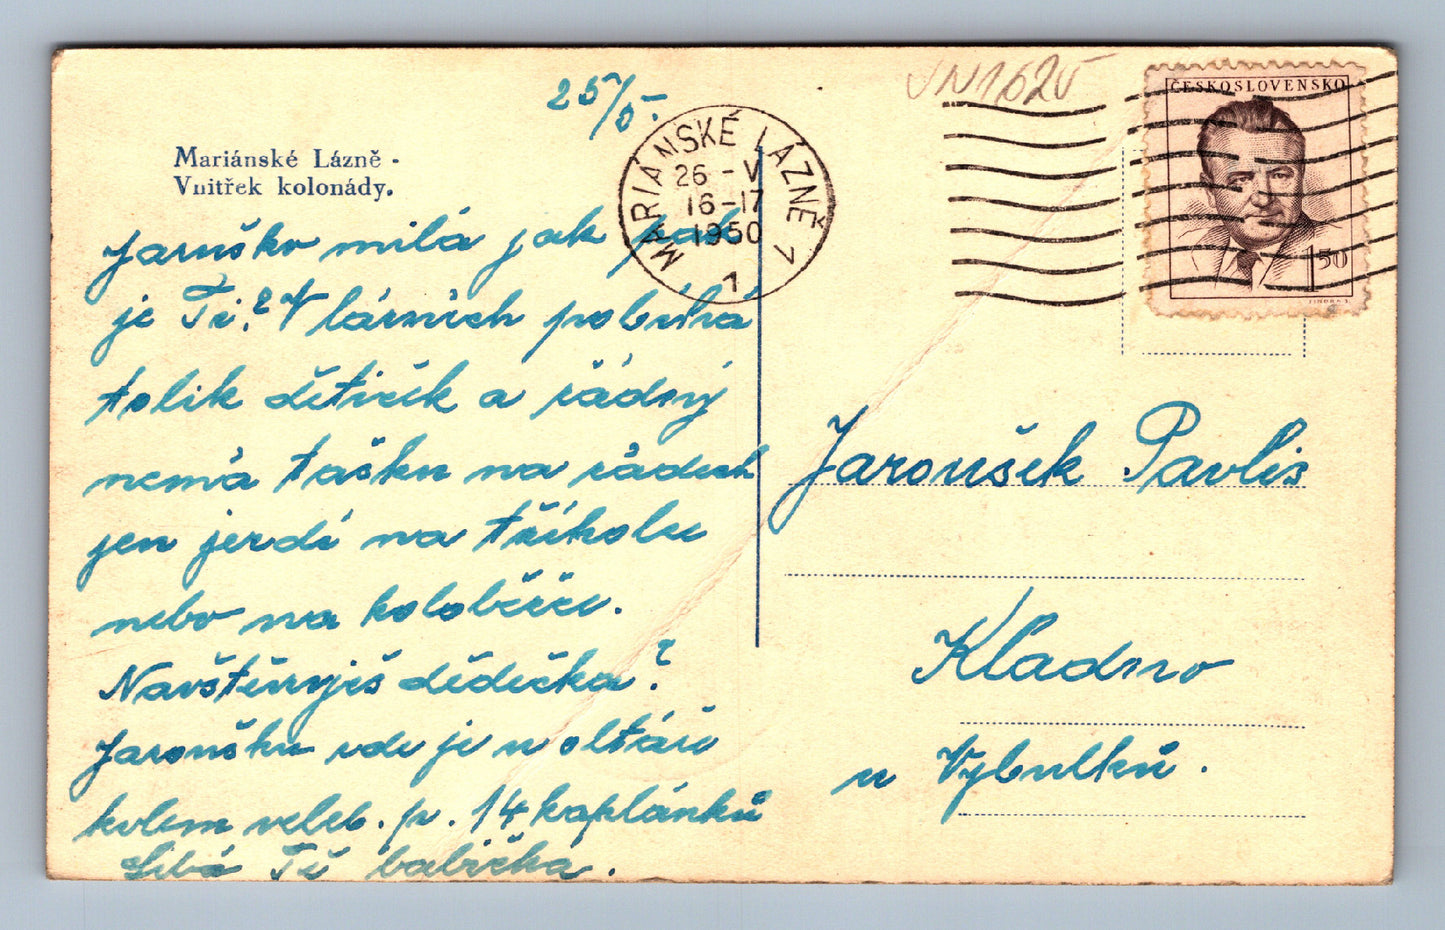 25/5.
VN1625
Mariánské Lázně -
Vnitřek kolonády.
MARIÁNSKÉ LÁZNĚ 1
26 - V
16-17
1950
1
ČESKOSLOVENSKO
1 50
Jaruško milá jak pak
je Ti? V lázních pobíhá
tolik dětiček a žádný
nemá tašku na zádech
jen jezdí na tříkolu
nebo na koloběžce.
Navštěvuješ dědečka?
Jaroušku zde je u oltáře
kolem veleb. p. 14 kaplánků
Líbá Tě babička.
Jaroušek Pavlis
Kladno
u Vybulků.